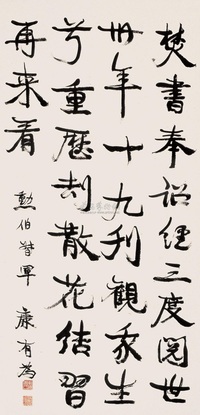 焚書奉詔經三度閱世
卅年十九刊觀我生
兮重歷劫散花結習
再来看
勲伯督軍
康有為